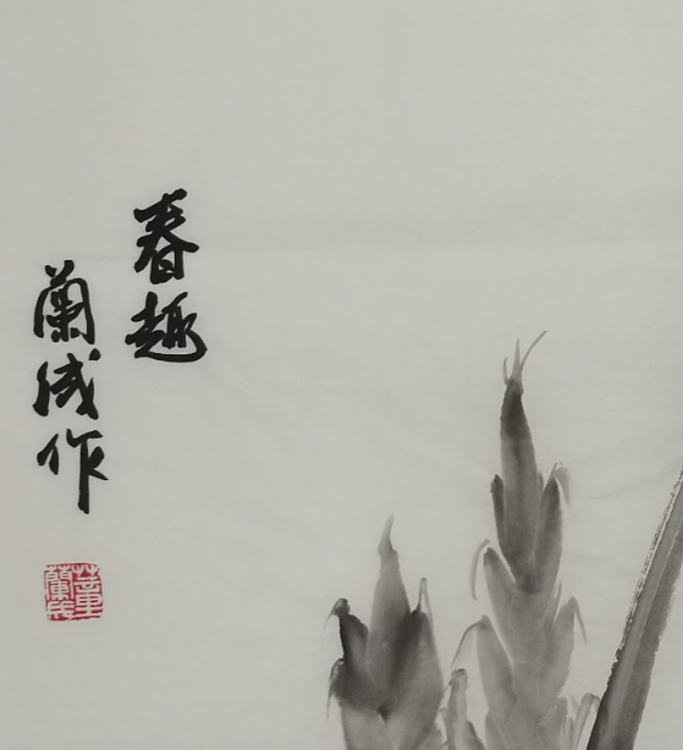 春趣
蘭成作
董蘭成